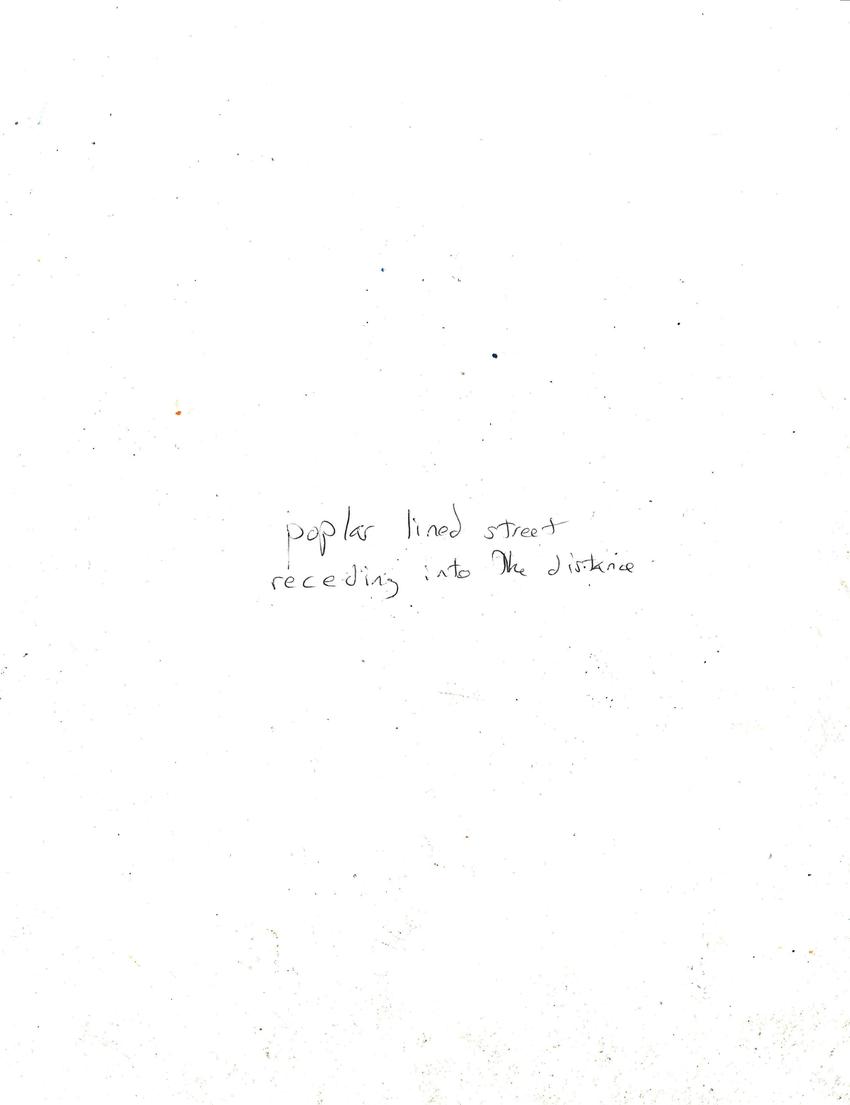 poplar lined street
receding into the distance